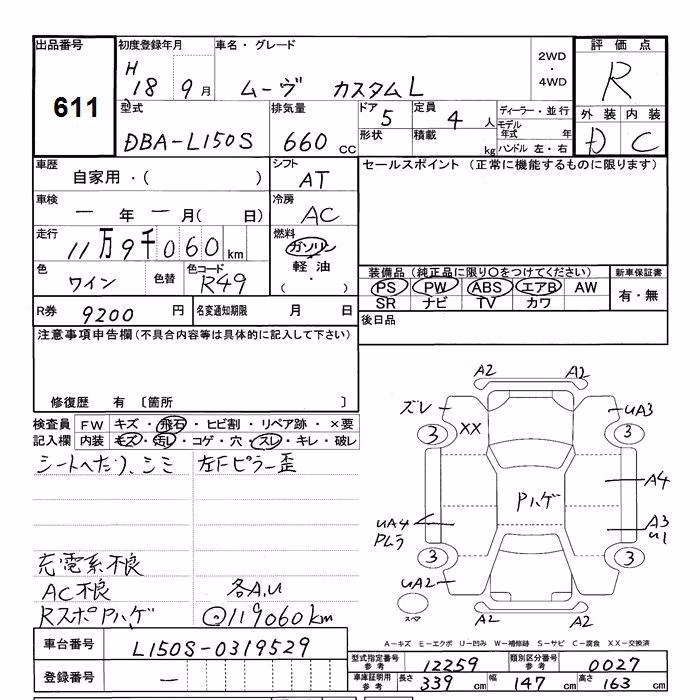 出品番号 初度登録年月 車名・グレード 2WD ・ 4WD 評価点
611 H 18 9月 ムーヴ カスタムL R
型式 排気量 ドア 定員 ディーラー・並行 外装 内装
DBA-L150S 660 cc 5 4人 モデル年式 年 D C
形状 積載 kg ハンドル 左・右
車歴 自家用・( ) シフト AT セールスポイント (正常に機能するものに限ります)
車検 一年一月( 日) 冷房 AC
走行 11万9千060km 燃料 ガソリン 軽油 ・ ( )
色 ワイン 色替 色コード R49 装備品 (純正品に限り○をつけてください) 新車保証書
PS PW ABS エアB AW 有・無
SR ナビ TV カワ
R券 9200円 名変通知期限 月 日 後日品
注意事項申告欄(不具合内容等は具体的に記入して下さい)
修復歴 有 〔箇所 〕
検査員 FW キズ・飛石・ヒビ割・リペア跡・×要
記入欄 内装 キズ・汚レ・コゲ・穴・スレ・キレ・破レ
シートへたり、シミ 左Fピラー歪
充電系不良
AC不良 各A,U
RスポPハゲ ◎119060km
A2 A2
ズレ UA3
3 XX 3
A4
Pハゲ
UA4 A3
PLラ U1
3 3
UA2
スペア A2 A2
A-キズ E-エクボ U-凹み W-補修跡 S-サビ C-腐食 XX-交換済
車台番号 L150S-0319529
型式指定番号 参考 12259 類別区分番号 参考 0027
登録番号 一
車庫証明用 参考 長さ 339 cm 幅 147 cm 高さ 163 cm